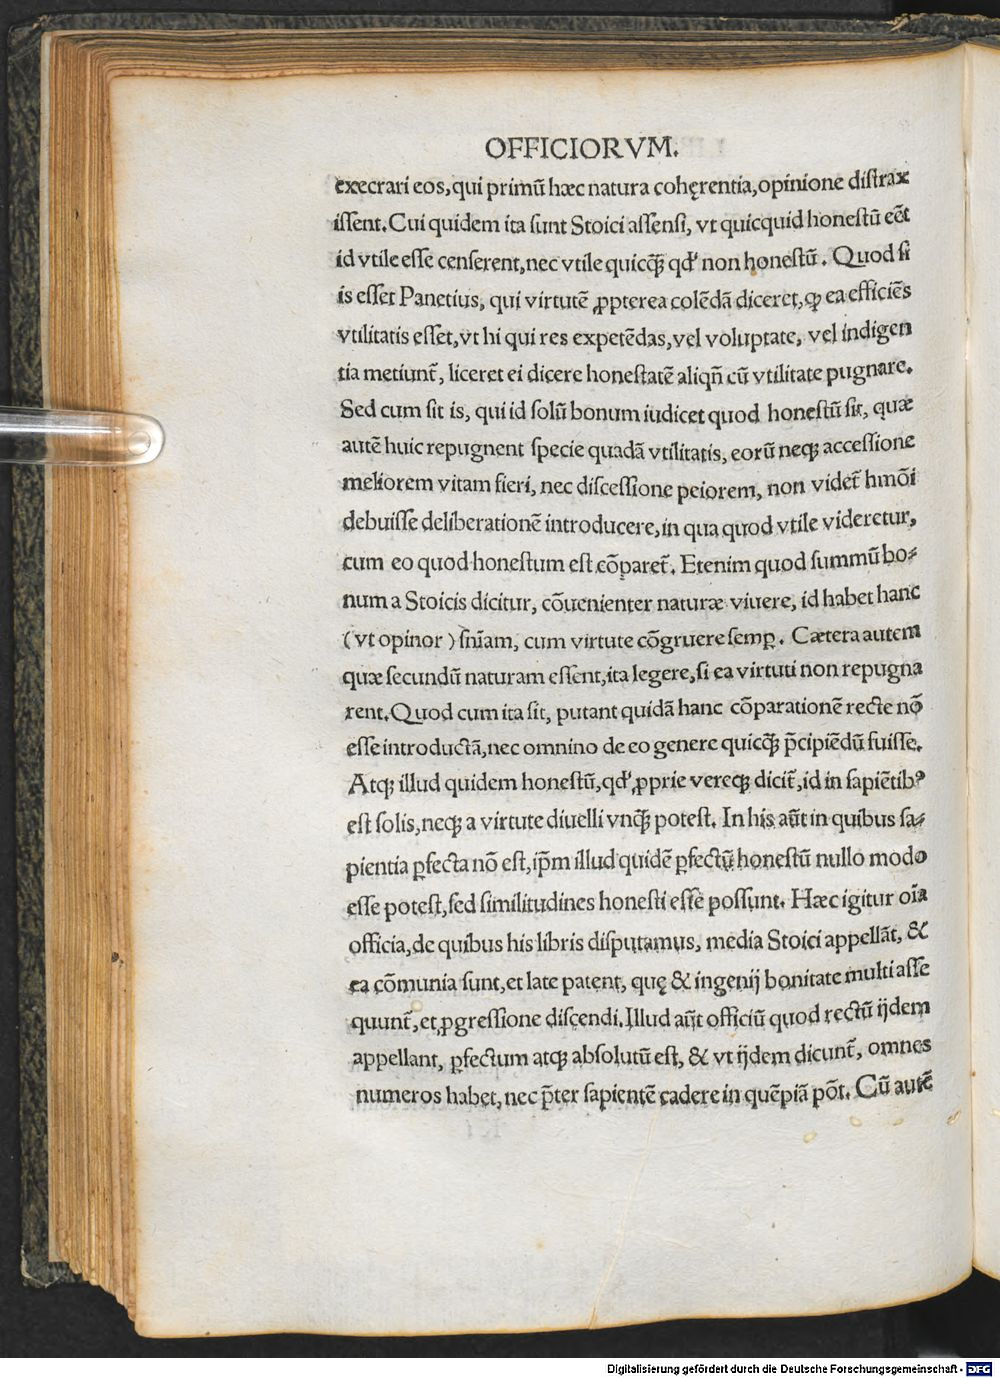 OFFICIORVM.
execrari eos, qui primū hæc natura cohęrentia, opinione distrax
issent. Cui quidem ita sunt Stoici assensi, vt quicquid honestū eēt
id vtile esse censerent, nec vtile quicq̄ꝫ qđ non honestū. Quod si
is esset Panetius, qui virtutē ꝓpterea colēdā diceret, ꝙ ea efficiēs
vtilitatis esset, vt hi qui res expetēdas, vel voluptate, vel indigen
tia metiunt̄, liceret ei dicere honestatē aliqn̄ cū vtilitate pugnare.
Sed cum sit is, qui id solū bonum iudicet quod honestū sit, quæ
autē huic repugnent specie quadā vtilitatis, eorū neqꝫ accessione
meliorem vitam fieri, nec discessione peiorem, non videt̄ hmōi
debuisse deliberationē introducere, in qua quod vtile videretur,
cum eo quod honestum est cōparet̄. Etenim quod summū bo⸗
num a Stoicis dicitur, cōuenienter naturæ viuere, id habet hanc
(vt opinor) sn̄iam, cum virtute cōgruere semꝑ. Cætera autem
quæ secundū naturam essent, ita legere, si ea virtuti non repugna
rent. Quod cum ita sit, putant quidā hanc cōparationē recte nō
esse introductā, nec omnino de eo genere quicq̄ꝫ p̄cipiēdū fuisse.
Atqꝫ illud quidem honestū, qđ ꝓprie vereqꝫ dicit̄, id in sapiētibꝰ
est solis, neqꝫ a virtute diuelli vnq̄ꝫ potest. In his aūt in quibus sa⸗
pientia ꝑfecta nō est, ip̄m illud quidē ꝑfectū honestū nullo modo
esse potest, sed similitudines honesti esse possunt. Hæc igitur oīa
officia, de quibus his libris disputamus, media Stoici appellāt, &
ea cōmunia sunt, et late patent, quę & ingenij bonitate multi asse
quunt̄, et ꝓgressione discendi. Illud aūt officiū quod rectū ijdem
appellant, ꝑfectum atqꝫ absolutū est, & vt ijdem dicunt̄, omnes
numeros habet, nec p̄ter sapientē cadere in quēpiā pōt. Cū autē
Digitalisierung gefördert durch die Deutsche Forschungsgemeinschaft - DFG